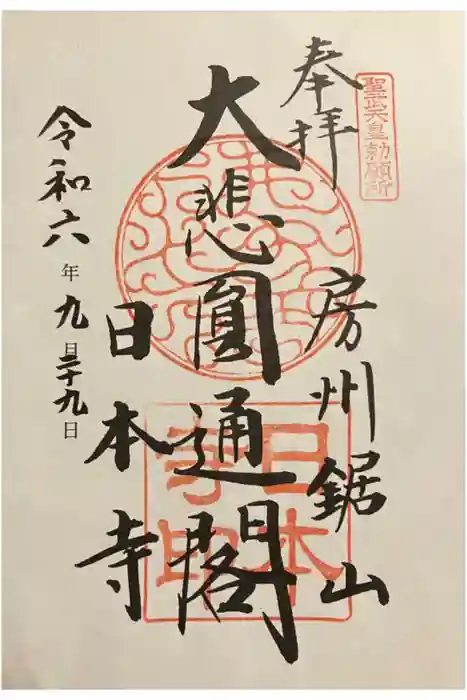 聖武天皇勅願所
奉拝
房州鋸山
大悲圓通閣
日本寺
令和六年九月二十九日
日本
寺印